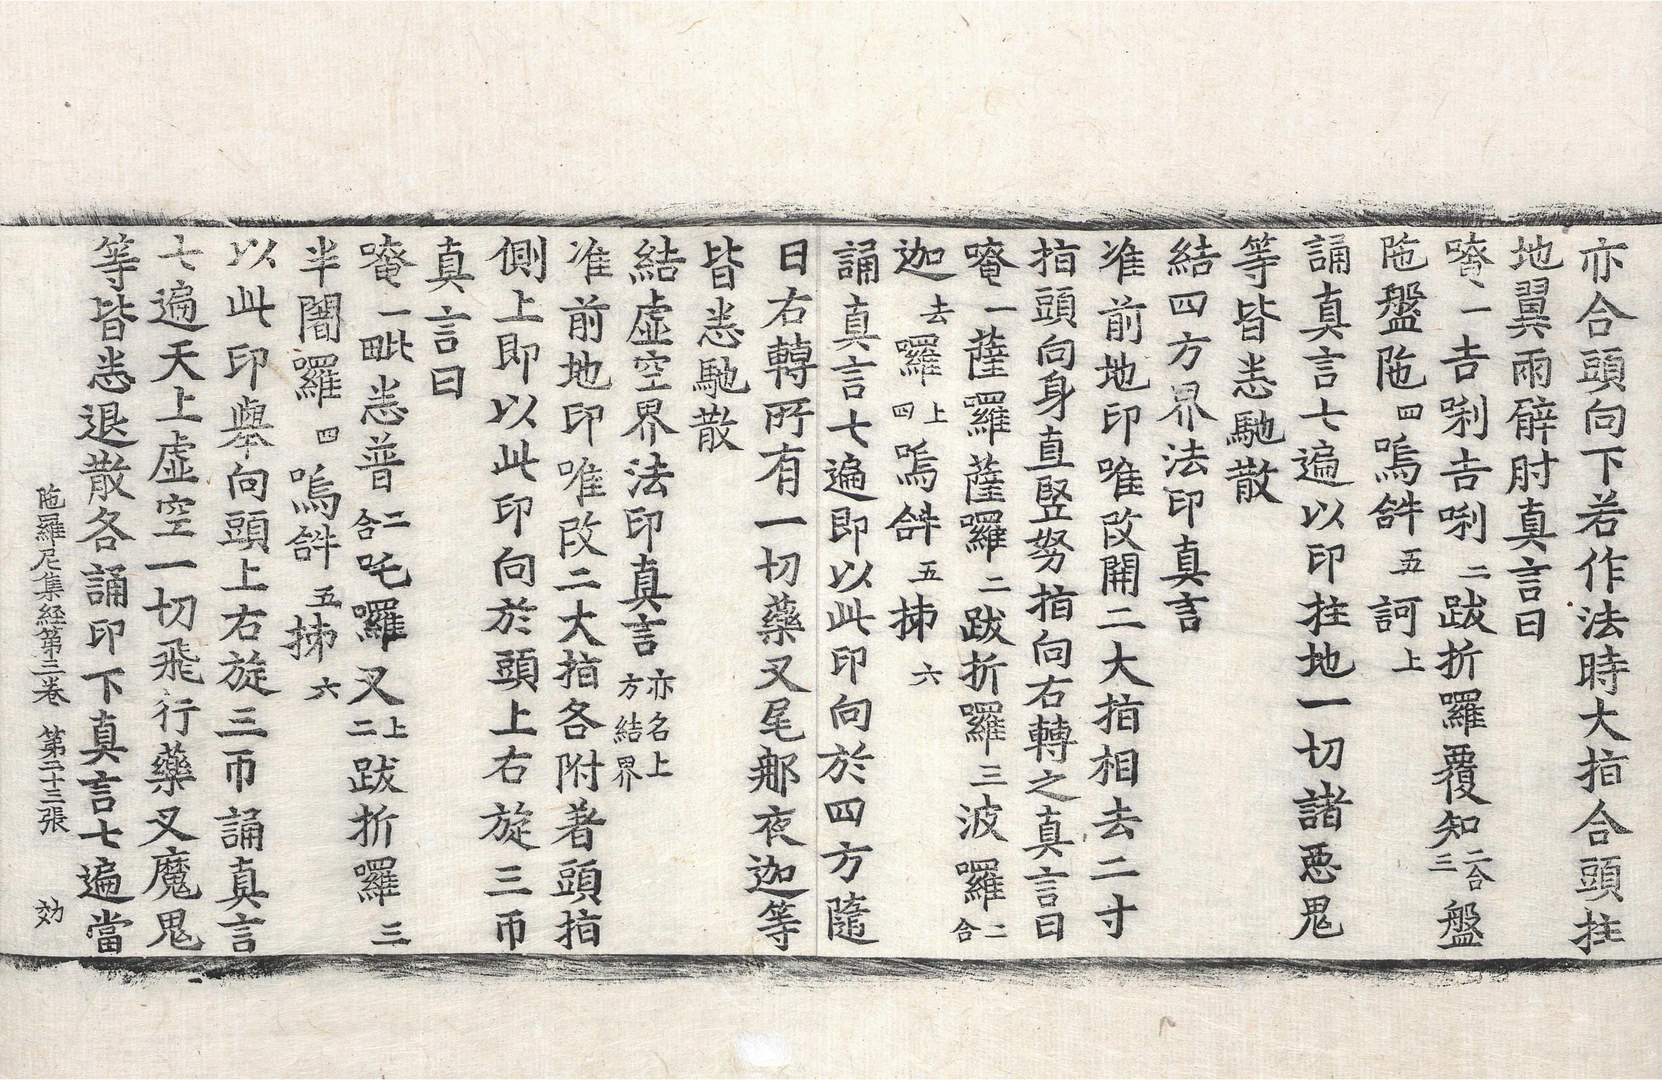 亦合頭向下若作法時大指合頭拄
地翼兩臂肘真言曰
唵一吉唎吉唎二跋折囉覆知二合三盤
陁盤陁四嗚𤙖五訶上
誦真言七遍以印拄地一切諸惡鬼
等皆悉馳散
結四方界法印真言
准前地印唯改開二大指相去二寸
指頭向身直竪努指向右轉之真言曰
唵一薩囉薩囉二跋折囉三波囉二合
迦去囉上四嗚𤙖五抪六
誦真言七遍即以此印向於四方隨
日右轉所有一切藥叉尾那夜迦等
皆悉馳散
結虛空界法印真言亦名上方結界
准前地印唯改二大指各附著頭指
側上即以此印向於頭上右旋三帀
真言曰
唵一毗悉普二合吒囉叉上二跋折囉三
半闍囉四嗚𤙖五抪六
以此印舉向頭上右旋三帀誦真言
七遍天上虛空一切飛行藥叉魔鬼
等皆悉退散各誦印下真言七遍當
陁羅尼集經第三卷 第二十三張 効